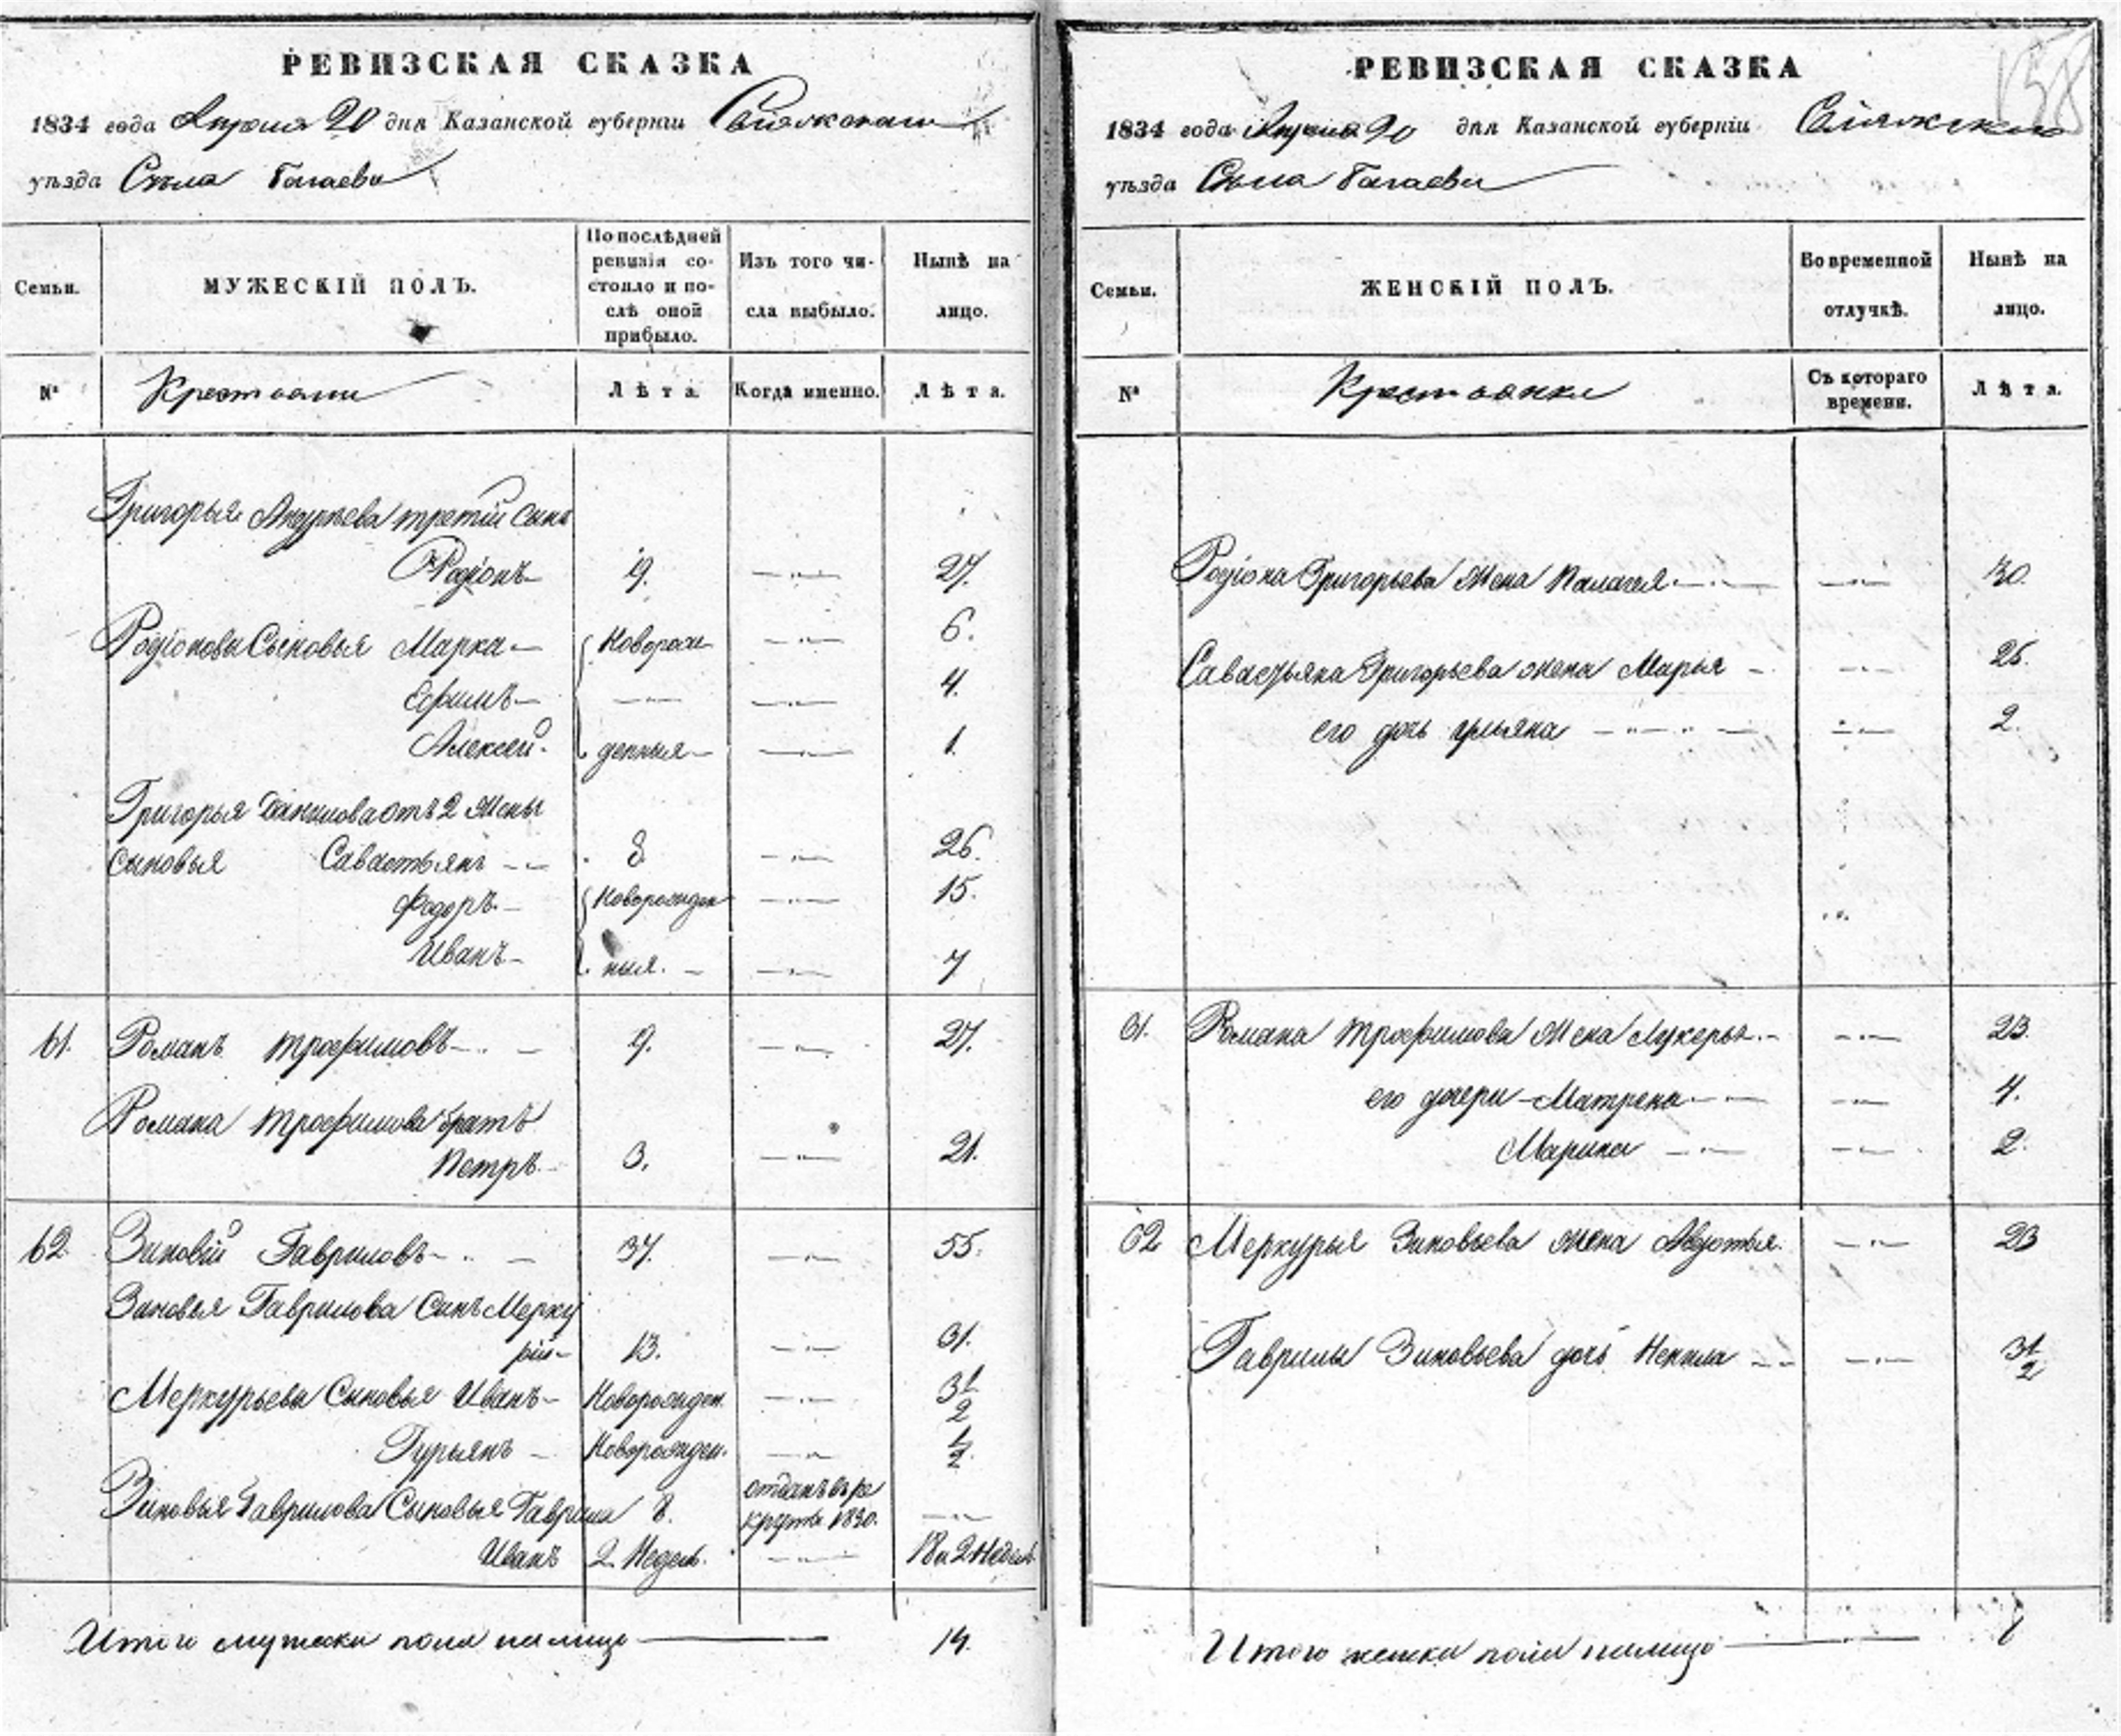 РЕВИЗСКАЯ СКАЗКА
1834 года Апреля 20 дня Казанской губернiи Свiяжскаго
уѣзда Села
Семьи.
МУЖЕСКIЙ ПОЛЪ.
По послѣдней ревизiи со-
стояло и по-
слѣ оной
прибыло.
Изъ того чи-
сла выбыло.
Нынѣ на
лицо.
№
Крестьяни
Лѣта.
Когда именно.
Лѣта.
Григорья Андреева третiй сынъ
Родiонъ 19. 27.
Родiоновы Сыновья Марка Новорож 6.
Ефимъ 4.
Алексей денныя 1.
Григорья Данилова отъ 2 Жены
сыновья Савастьянъ 8 26.
Федоръ Новорожден 15.
Иванъ ныя. 7
61. Романъ Трофимовъ 9. 27.
Романа Трофимова братъ
Петръ 3. 21.
62 Зиновiй Гавриловъ 37. 55.
Зиновья Гаврилова Сынъ Мерку
рiй 13. 31.
Меркурьевы Сыновья Иванъ Новорожден. 3 1/2
Гурьянъ Новорожден. 1/2
Зиновья Гаврилова Сыновья Гаврила 8. отданъ въ ре
круты 1830.
Иванъ 2 Недель. 18 и 2 Недель
Итого мужеска пола на лицо 14.
РЕВИЗСКАЯ СКАЗКА
158
1834 года Апреля 20 дня Казанской губернiи Свiяжскаго
уѣзда Села
Семьи.
ЖЕНСКIЙ ПОЛЪ.
Во временной
отлучкѣ.
Нынѣ на
лицо.
№
Крестьянки
Съ котораго
времени.
Лѣта.
Родiона Григорьева Жена Палагея 30.
Савастьяна Григорьева жена Марья 25.
его дочь Ульяна 2.
61. Романа Трофимова Жена Лукерья 23.
его дочери Матрена 4.
Марина 2.
62 Меркурья Зиновьева жена Авдотья 23
Гаврилы Зиновьева дочь Ненила 3 1/2
Итого женска пола на лицо 8